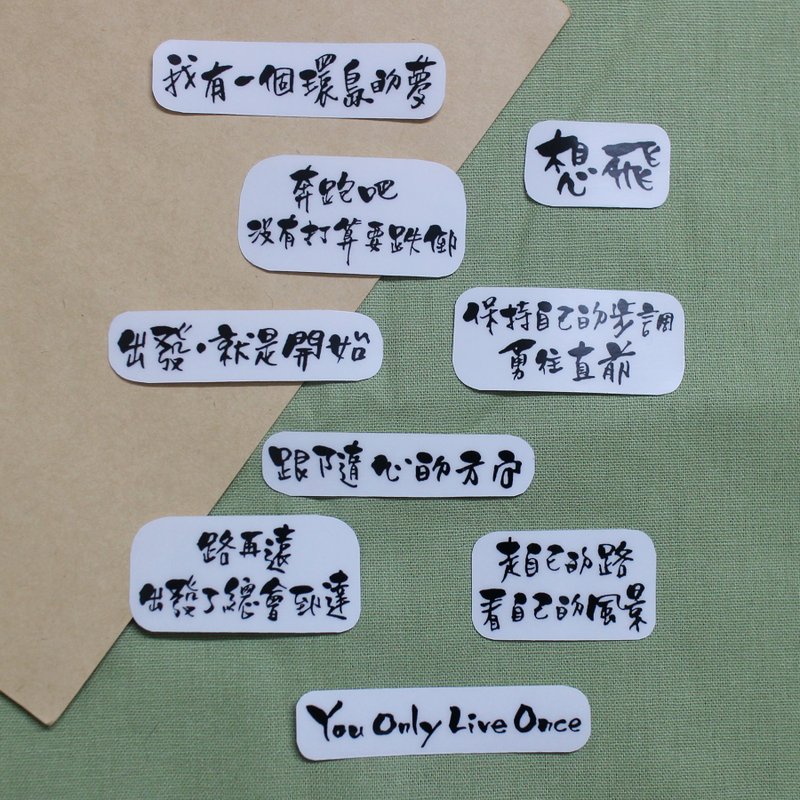 我有一個環島的夢
想飛
奔跑吧
沒有打算要跌倒
出發。就是開始
保持自己的步調
勇往直前
跟隨心的方向
路再遠
出發了總會到達
走自己的路
看自己的風景
You Only Live Once